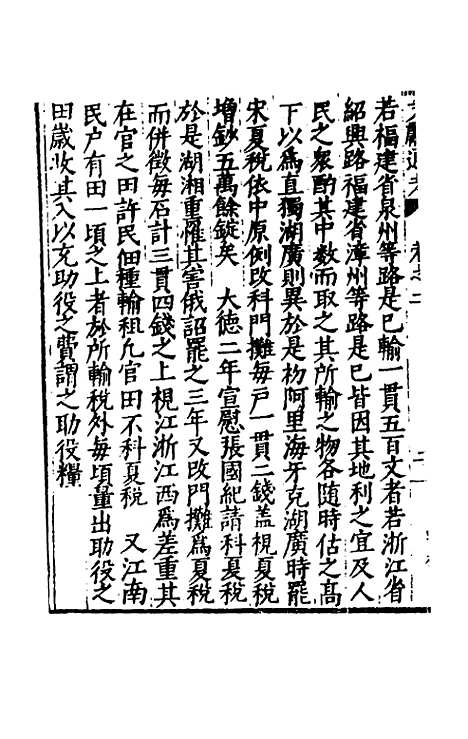 若福建省泉州等路是已輸一貫五百文者若浙江省
紹興路福建省漳州等路是已皆因其地利之宜及人
民之衆酌其中数而取之其所輸之物各随時估之髙
下以為直獨湖廣則異於是初阿里海牙克湖廣時罷
宋夏稅依中原例改科門攤每戸一貫二錢盖視夏稅
增鈔五萬餘錠矣　大德二年宣慰張國紀請科夏稅
於是湖湘重罹其害俄詔罷之三年又改門攤為夏稅
而併徴每石計三貫四錢之上視江浙江西為差重其
在官之田許民佃種輸租凢官田不科夏稅　又江南
民户有田一頃之上者於所輸稅外每頃量出助役之
田歲收其入以充助役之費謂之助役糧